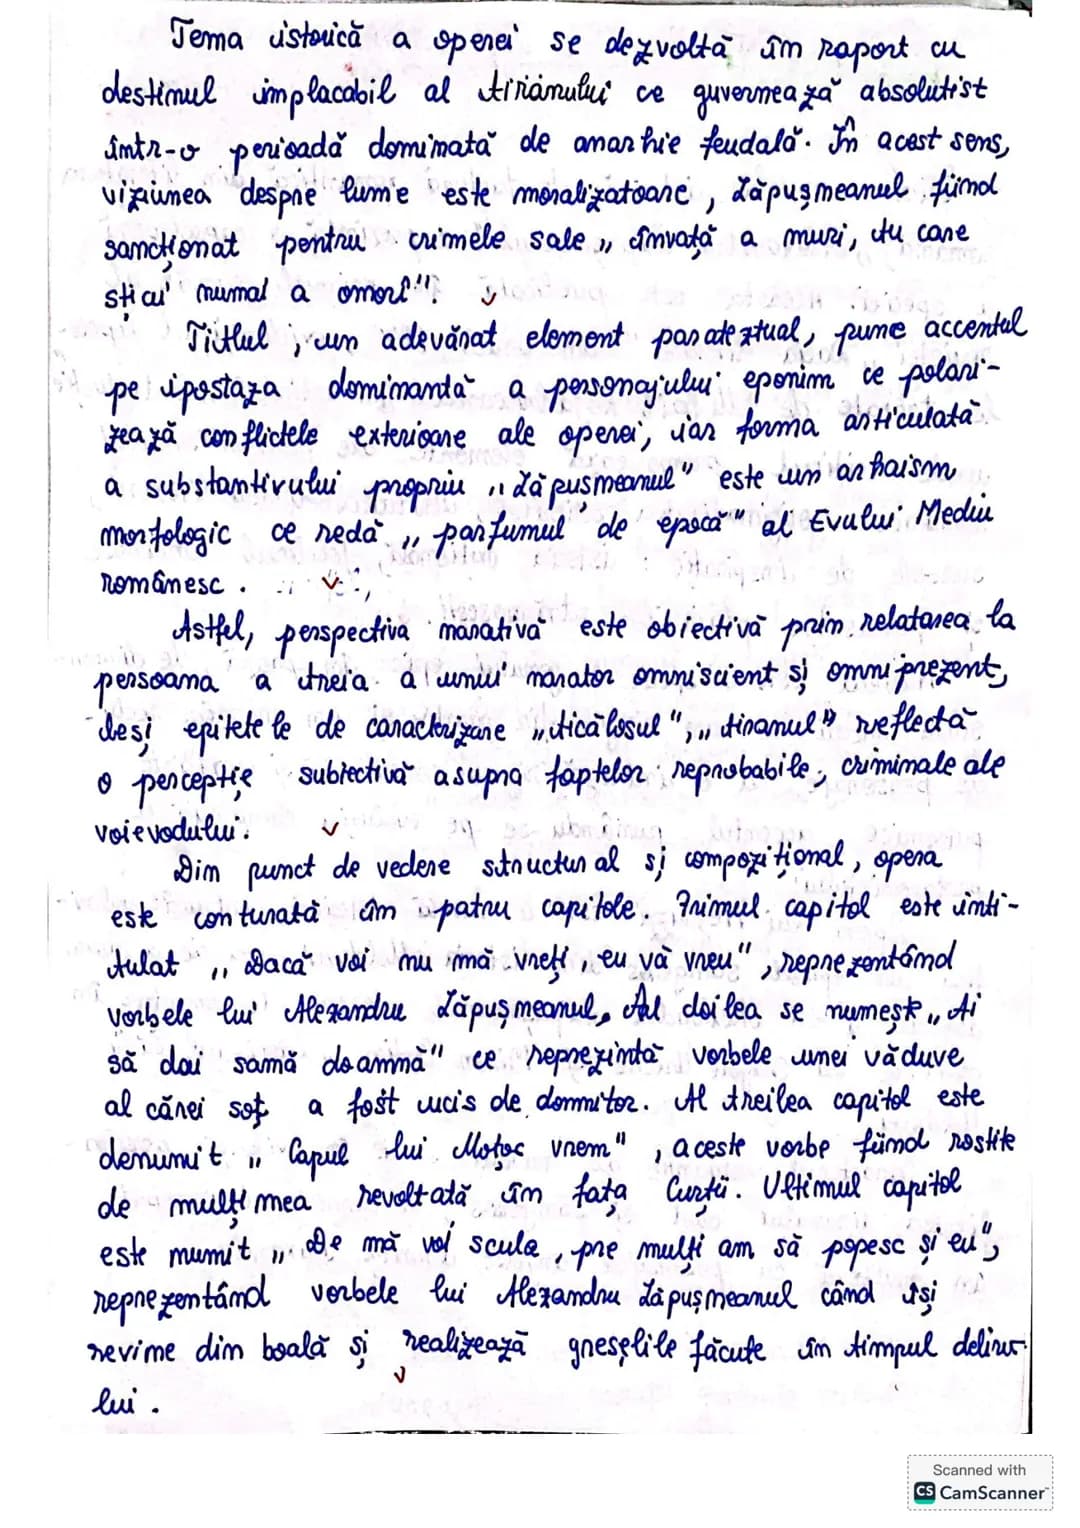 Tema istorică a operei se dezvoltă în raport cu
destinul implacabil al tiranului ce guvernează absolutist
într-o perioadă dominată de anarhie feudală. În acest sens,
viziunea despre lume este moralizatoare, Lăpușneanul fiind
sancționat pentru crimele sale „învață a muri, tu care
știai numai a omorî".
Titlul, un adevărat element paratextual, pune accentul
pe ipostaza dominantă a personajului eponim ce polari-
zează conflictele exterioare ale operei, iar forma articulată
a substantivului propriu „Lăpușneanul" este un arhaism
morfologic ce redă „parfumul de epocă" al Evului Mediu
românesc.
Astfel, perspectiva narativă este obiectivă prin relatarea la
persoana a treia a unui narator omniscient și omniprezent,
deși epitetele de caracterizare „ticălosul", „tiranul" reflectă
o percepție subiectivă asupra faptelor reprobabile, criminale ale
voievodului.
Din punct de vedere structural și compozițional, opera
este conturată în patru capitole. Primul capitol este inti-
tulat „Dacă voi nu mă vreți, eu vă vreu", reprezentând
vorbele lui Alexandru Lăpușneanul. Al doilea se numește „Ai
să dai samă doamnă" ce reprezintă vorbele unei văduve
al cărei soț a fost ucis de domnitor. Al treilea capitol este
denumit „Capul lui Moțoc vrem", aceste vorbe fiind rostite
de mulțimea revoltată în fața Curții. Ultimul capitol
este numit „De mă voi scula, pre mulți am să popesc și eu",
reprezentând vorbele lui Alexandru Lăpușneanul când își
revine din boală și realizează greșelile făcute în timpul deliru-
lui.
Scanned with
CS CamScanner